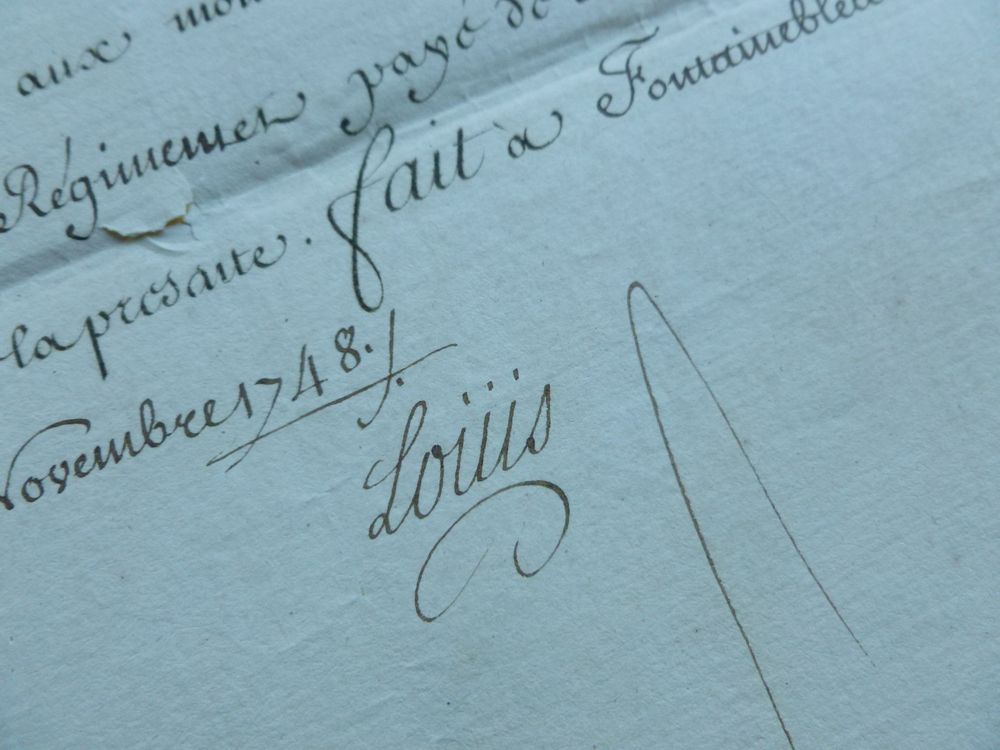 aux
Régiment payé de
la presente. fait à Fontaineble
Novembre 1748.
Louis